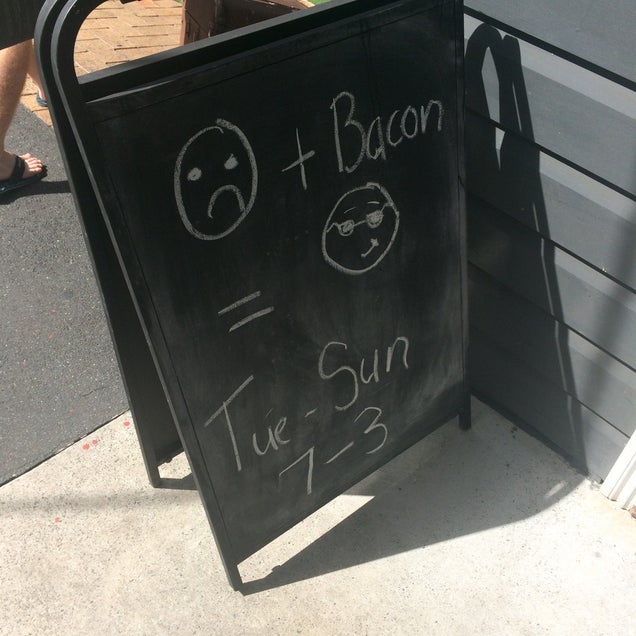 + Bacon
=
Tue - Sun
7-3